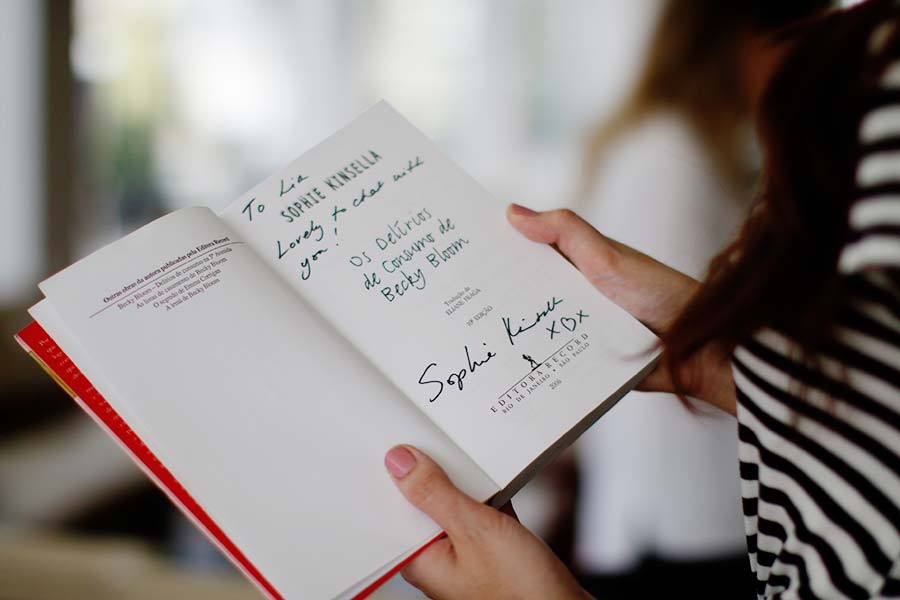 Outras obras da autora publicadas pela Editora Record
Becky Bloom – Delírios de consumo na 5ª Avenida
As listas de casamento de Becky Bloom
O segredo de Emma Corrigan
A irmã de Becky Bloom
To Lia
SOPHIE KINSELLA
Lovely to chat with
you!
Os Delírios
de Consumo de
Becky Bloom
Tradução de
ELIANE FRAGA
19ª EDIÇÃO
Sophie Kinsella
X♡X
EDITORA RECORD
RIO DE JANEIRO • SÃO PAULO
2006